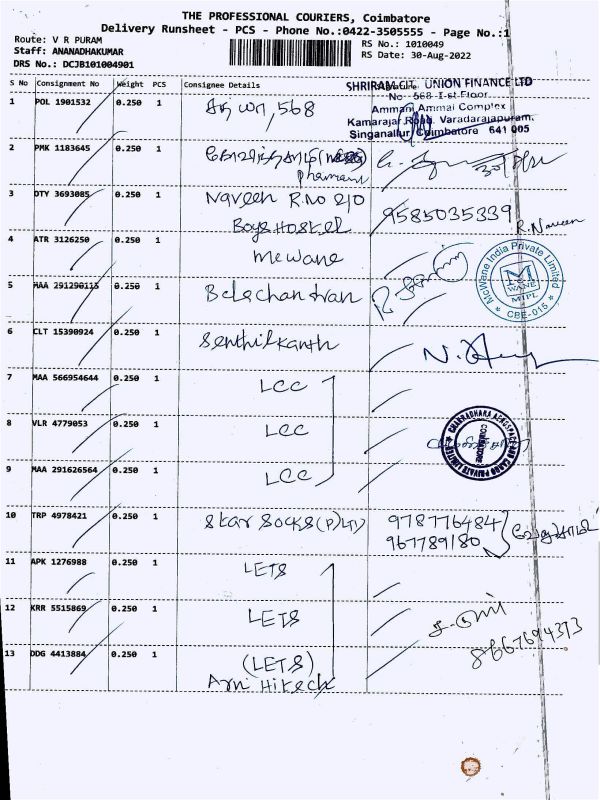 THE PROFESSIONAL COURIERS, Coimbatore
Delivery Runsheet - PCS - Phone No.:0422-3505555 - Page No.:1
Route: V R PURAM
Staff: ANANADHAKUMAR
DRS No.: DCJB101004901
RS No.: 1010049
RS Date: 30-Aug-2022
S No Consignment No Weight PCS Consignee Details
SHRIRAM CITY UNION FINANCE LTD
No 568 I-st Floor
Ammani Ammal Complex
Kamarajar Road, Varadarajapuram,
Singanallur, Coimbatore 641 005
1 POL 1901532 0.250 1 568
2 PMK 1183645 0.250 1
3 DTY 3693085 0.250 1 Naveen R.NO 210
Boys Hostel 9585035339 R.Naveen
4 ATR 3126250 0.250 1 Mcwane
McWane India Private Limited
McWANE
MIPL
CBE-015
5 MAA 291290113 0.250 1 Balachandran
6 CLT 15390924 0.250 1 Senthilkanth
7 MAA 566954644 0.250 1 LCC
8 VLR 4779053 0.250 1 LCC
CHAKRADHARA AEROSPACE AND CARGO PRIVATE LIMITED
COIMBATORE
9 MAA 291626564 0.250 1 LCC
10 TRP 4978421 0.250 1 Star Socks (P) LTD 978776484
967789180
11 APK 1276988 0.250 1 LETS
12 KRR 5515869 0.250 1 LETS
8667694373
13 DDG 4413884 0.250 1 (LETS)
Arni Hitech